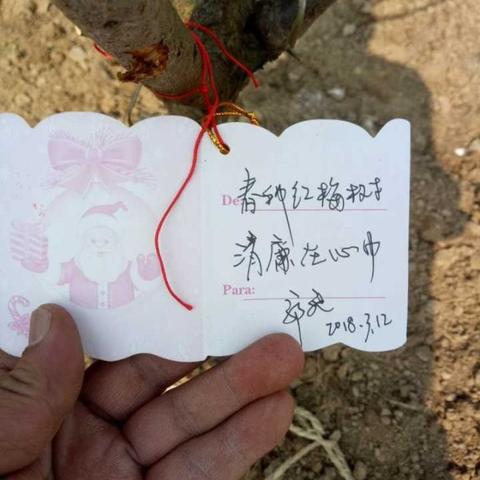 De:
春种红梅树
清廉在心中
Para:
2018.3.12